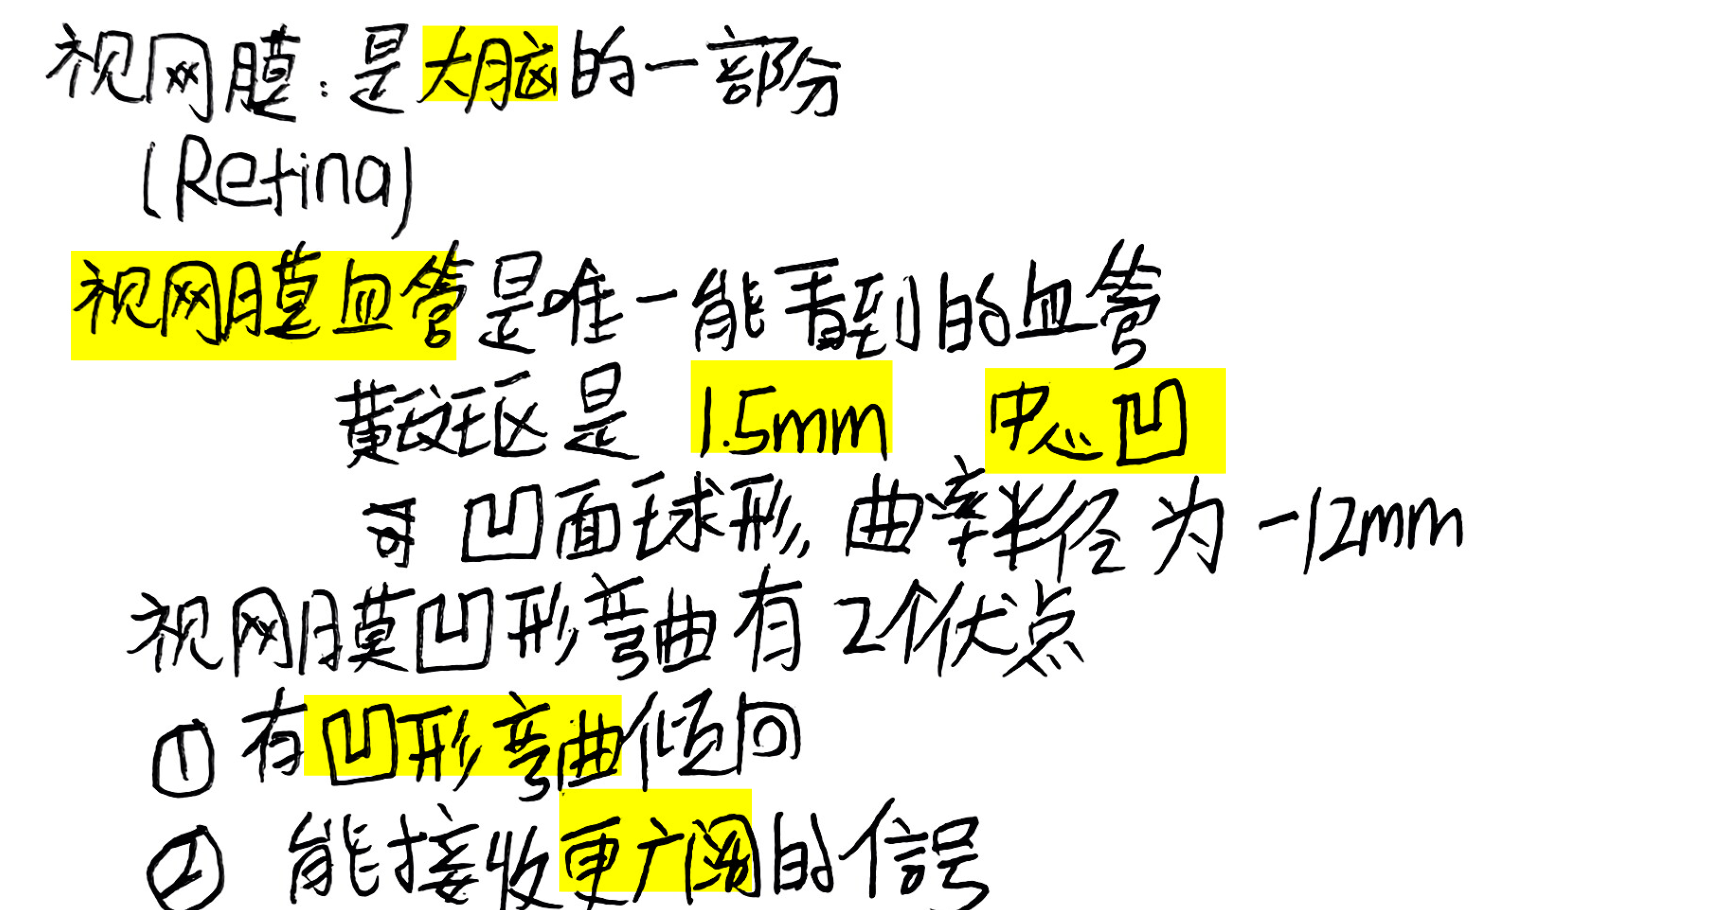 视网膜:是大脑的一部分
(Retina)
视网膜血管是唯一能看到的血管
黄斑区是 1.5mm 中心凹
凹面球形,曲率半径为 -12mm
视网膜凹形弯曲有2个优点
① 有凹形弯曲倾向
② 能接收更广阔的信号